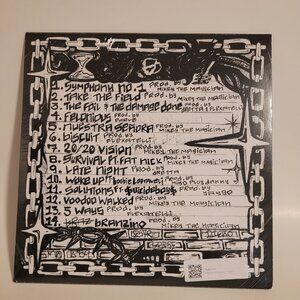 1. SYMPHONY NO. 1 PROD. BY MIKEY THE MAGICIAN
2. TAKE THE FIELD PROD. BY MIKEY THE MAGICIAN
3. THE FOIL & THE DAMAGE DONE PROD. BY
4. FELONIOUS PROD. BY
5. NUESTRA SEÑORA PROD. BY MIKEY THE MAGICIAN
6. BISCUIT PROD. BY
7. 20/20 VISION PROD. BY MIKEY THE MAGICIAN
8. SURVIVAL FT. FAT NICK PROD. BY MIKEY THE MAGICIAN
9. LATE NIGHT PROD. BY
10. WAKE UP FT.
11. SOLUTIONS FT. $UICIDEBOY$ PROD. BY
12. VOODOO WALKED PROD. BY MIKEY THE MAGICIAN
13. 5 WAYS PROD. BY
14. BRANZINO PROD. BY MIKEY THE MAGICIAN